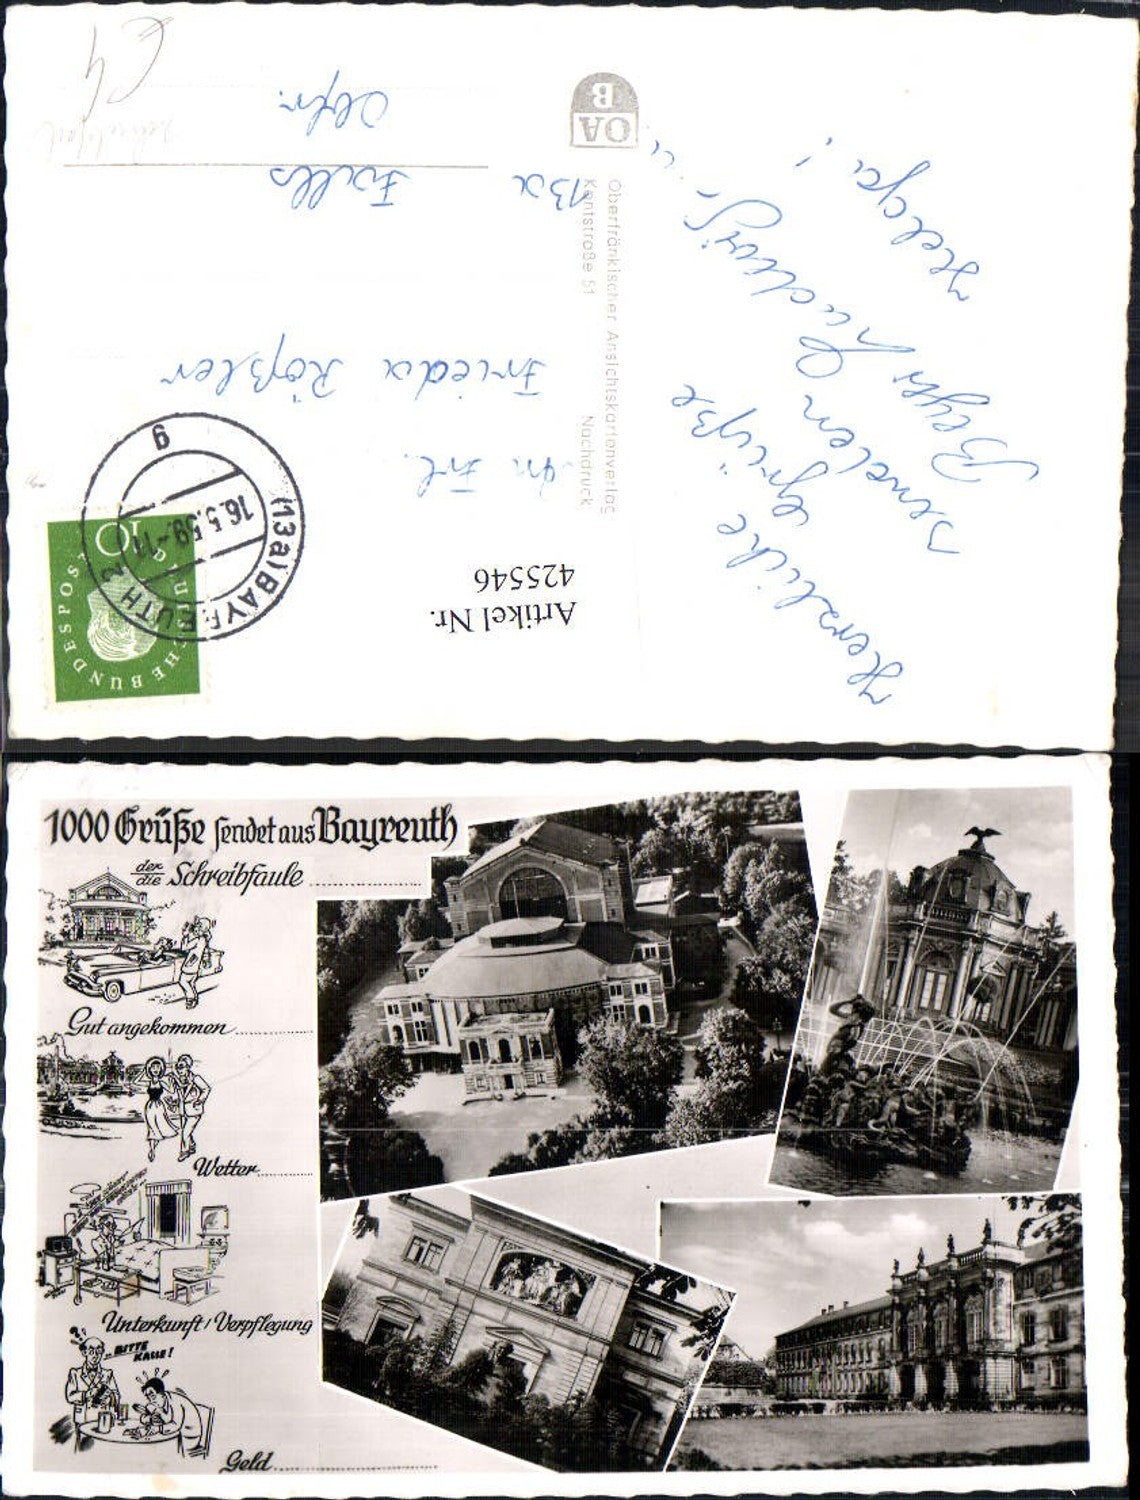 Herzliche Grüße
senden Ludwig u.
Helga!
Artikel Nr.
425546
DEUTSCHE BUNDESPOST
10
(13a) BAYREUTH 2
16.5.59.-11
g
An Frl.
Frieda Rößler
13a Falls
Obfr.
Oberfränkischer Ansichtskartenverlag
Kantstraße 51 Nachdruck
OA
B
1000 Grüße sendet aus Bayreuth
der
die Schreibfaule
Gut angekommen
Wetter
Unterkunft / Verpflegung
..BITTE
KASSE!
Geld